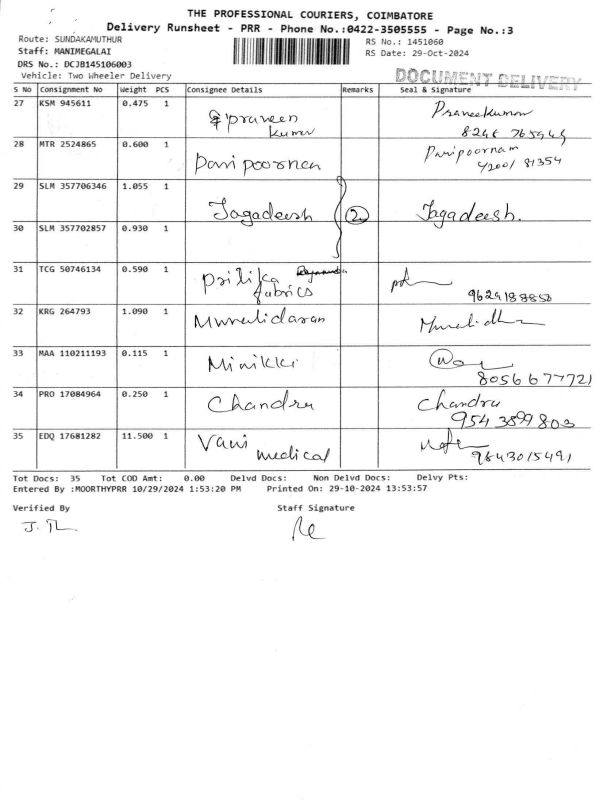 THE PROFESSIONAL COURIERS, COIMBATORE
Delivery Runsheet - PRR - Phone No.:0422-3505555 - Page No.:3
Route: SUNDAKAMUTHUR RS No.: 1451060
Staff: MANIMEGALAI RS Date: 29-Oct-2024
DRS No.: DCJB145106003
Vehicle: Two Wheeler Delivery DOCUMENT DELIVERY
S No Consignment No Weight PCS Consignee Details Remarks Seal & Signature
27 KSM 945611 0.475 1 praveen kumar Praveekumar
28 MTR 2524865 0.600 1 Paripoornam
29 SLM 357706346 1.055 1 Jagadeesh 2 Jagadeesh.
30 SLM 357702857 0.930 1
31 TCG 50746134 0.590 1 fabrics
9629188858
32 KRG 264793 1.090 1 Muralidaran
33 MAA 110211193 0.115 1 Minikki
8056677721
34 PRO 17084964 0.250 1 Chandru Chandru
9543899803
35 EDQ 17681282 11.500 1 Vani medical
9843015491
Tot Docs: 35 Tot COD Amt: 0.00 Delvd Docs: Non Delvd Docs: Delvy Pts:
Entered By :MOORTHYPRR 10/29/2024 1:53:20 PM Printed On: 29-10-2024 13:53:57
Verified By Staff Signature